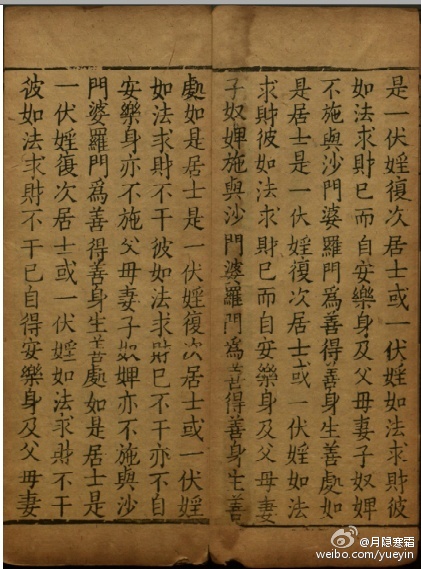 是一伏婬復次居士或一伏婬如法求財彼
如法求財已而自安樂身及父母妻子奴婢
不施與沙門婆羅門爲善得善身生善處如
是居士是一伏婬復次居士或一伏婬如法
求財彼如法求財已而自安樂身及父母妻
子奴婢施與沙門婆羅門爲善得善身生善
處如是居士是一伏婬復次居士或一伏婬
如法求財不干彼如法求財已不干亦不自
安樂身亦不施父母妻子奴婢亦不施與沙
門婆羅門爲善得善身生善處如是居士是
一伏婬復次居士或一伏婬如法求財不干
彼如法求財不干已自得安樂身及父母妻
@月隐寒霜
weibo.com/yueyin